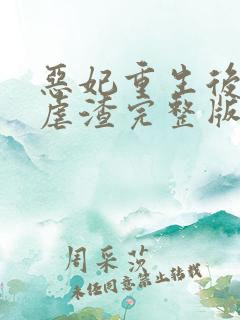 惡妃重生後
虐渣完整版
周采莎
未经同意禁止转载